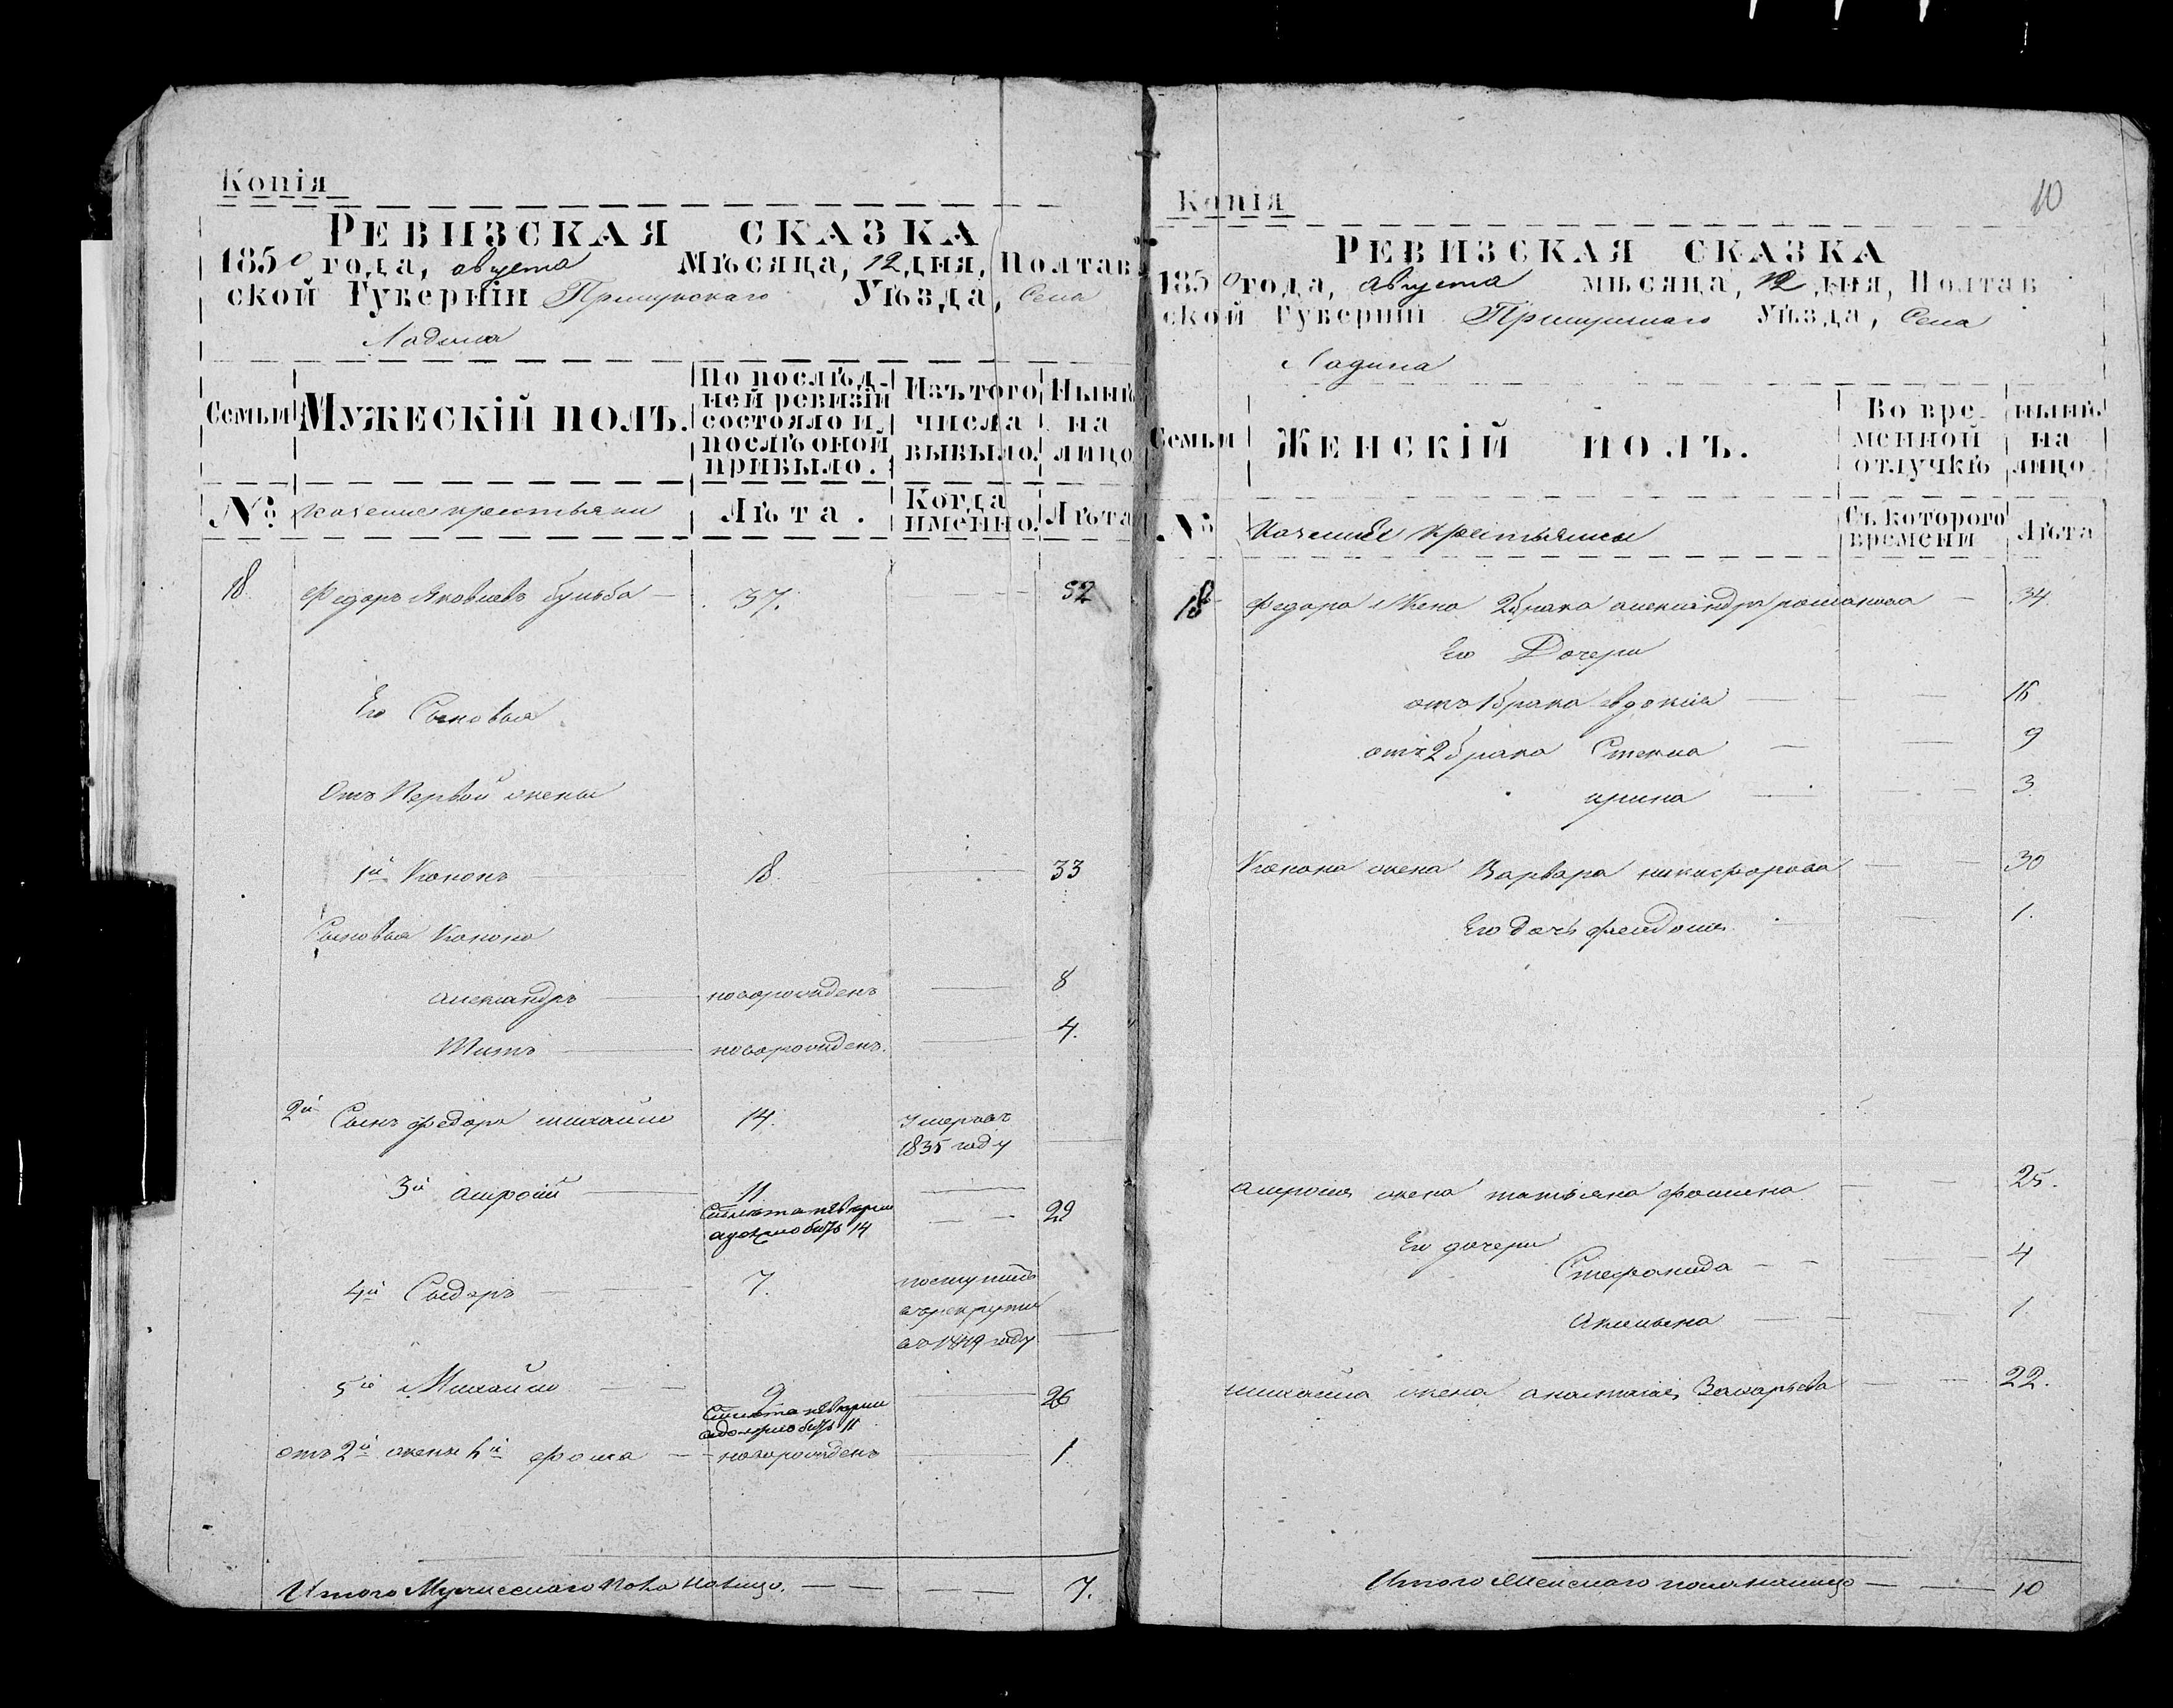 Копія
РЕВИЗСКАЯ СКАЗКА
1850 года, августа Мѣсяца, 12 дня, Полтав
ской Губерніи Прилуцкаго Уѣзда, Села
Ладина
Семьи
МУЖЕСКІЙ ПОЛЪ.
По послѣд-
ней ревизіи
состояло и
послѣ оной
прибыло.
Изъ того
числа
выбыло.
Нынѣ
на
лицо
№
казенные крестьяни
Лѣта.
Когда
именно.
Лѣта
18 Федоръ Яковлевъ бульба 37. 52
Его Сыновья
Отъ Первой жены
1й Кононъ 18 33
Сыновья Конона
александръ новорожденъ 8
Титъ новорожденъ. 4.
2й Сынъ федора михайло 14. Умеръ въ
1835 году
3й амросій 11
29
а должно быть 14
4й Сидоръ 7. поступилъ
в рекруты
в 1849 году
5й Михайло 9 26
а должно быть 11
отъ 2й жены 6й фома новорожденъ 1
Итого Мужескаго пола налицо. 7.
10
Копія
РЕВИЗСКАЯ СКАЗКА
1850 года, августа мѣсяца, 12 дня, Полтав
ской Губерніи Прилуцкаго Уѣзда, Села
Ладина
Семьи
ЖЕНСКІЙ ПОЛЪ.
Во вре-
менной
отлучкѣ
нынѣ
на
лицо.
№
казенные крестьянки
Съ которого
времени
Лѣта
18 Федора Жена 2 брака александра романова 34.
Его Дочери
отъ 1 брака евдокия 16
отъ 2 брака Стеха 9
ирина 3
Конона жена Варвара никифорова 30
Его дочь феодосия 1.
амросия жена татьяна фомина 25.
Его дочери
Стефанида 4
Акилина 1
михайла жена анастасия Захарьева 22.
Итого Женскаго пола налицо 10